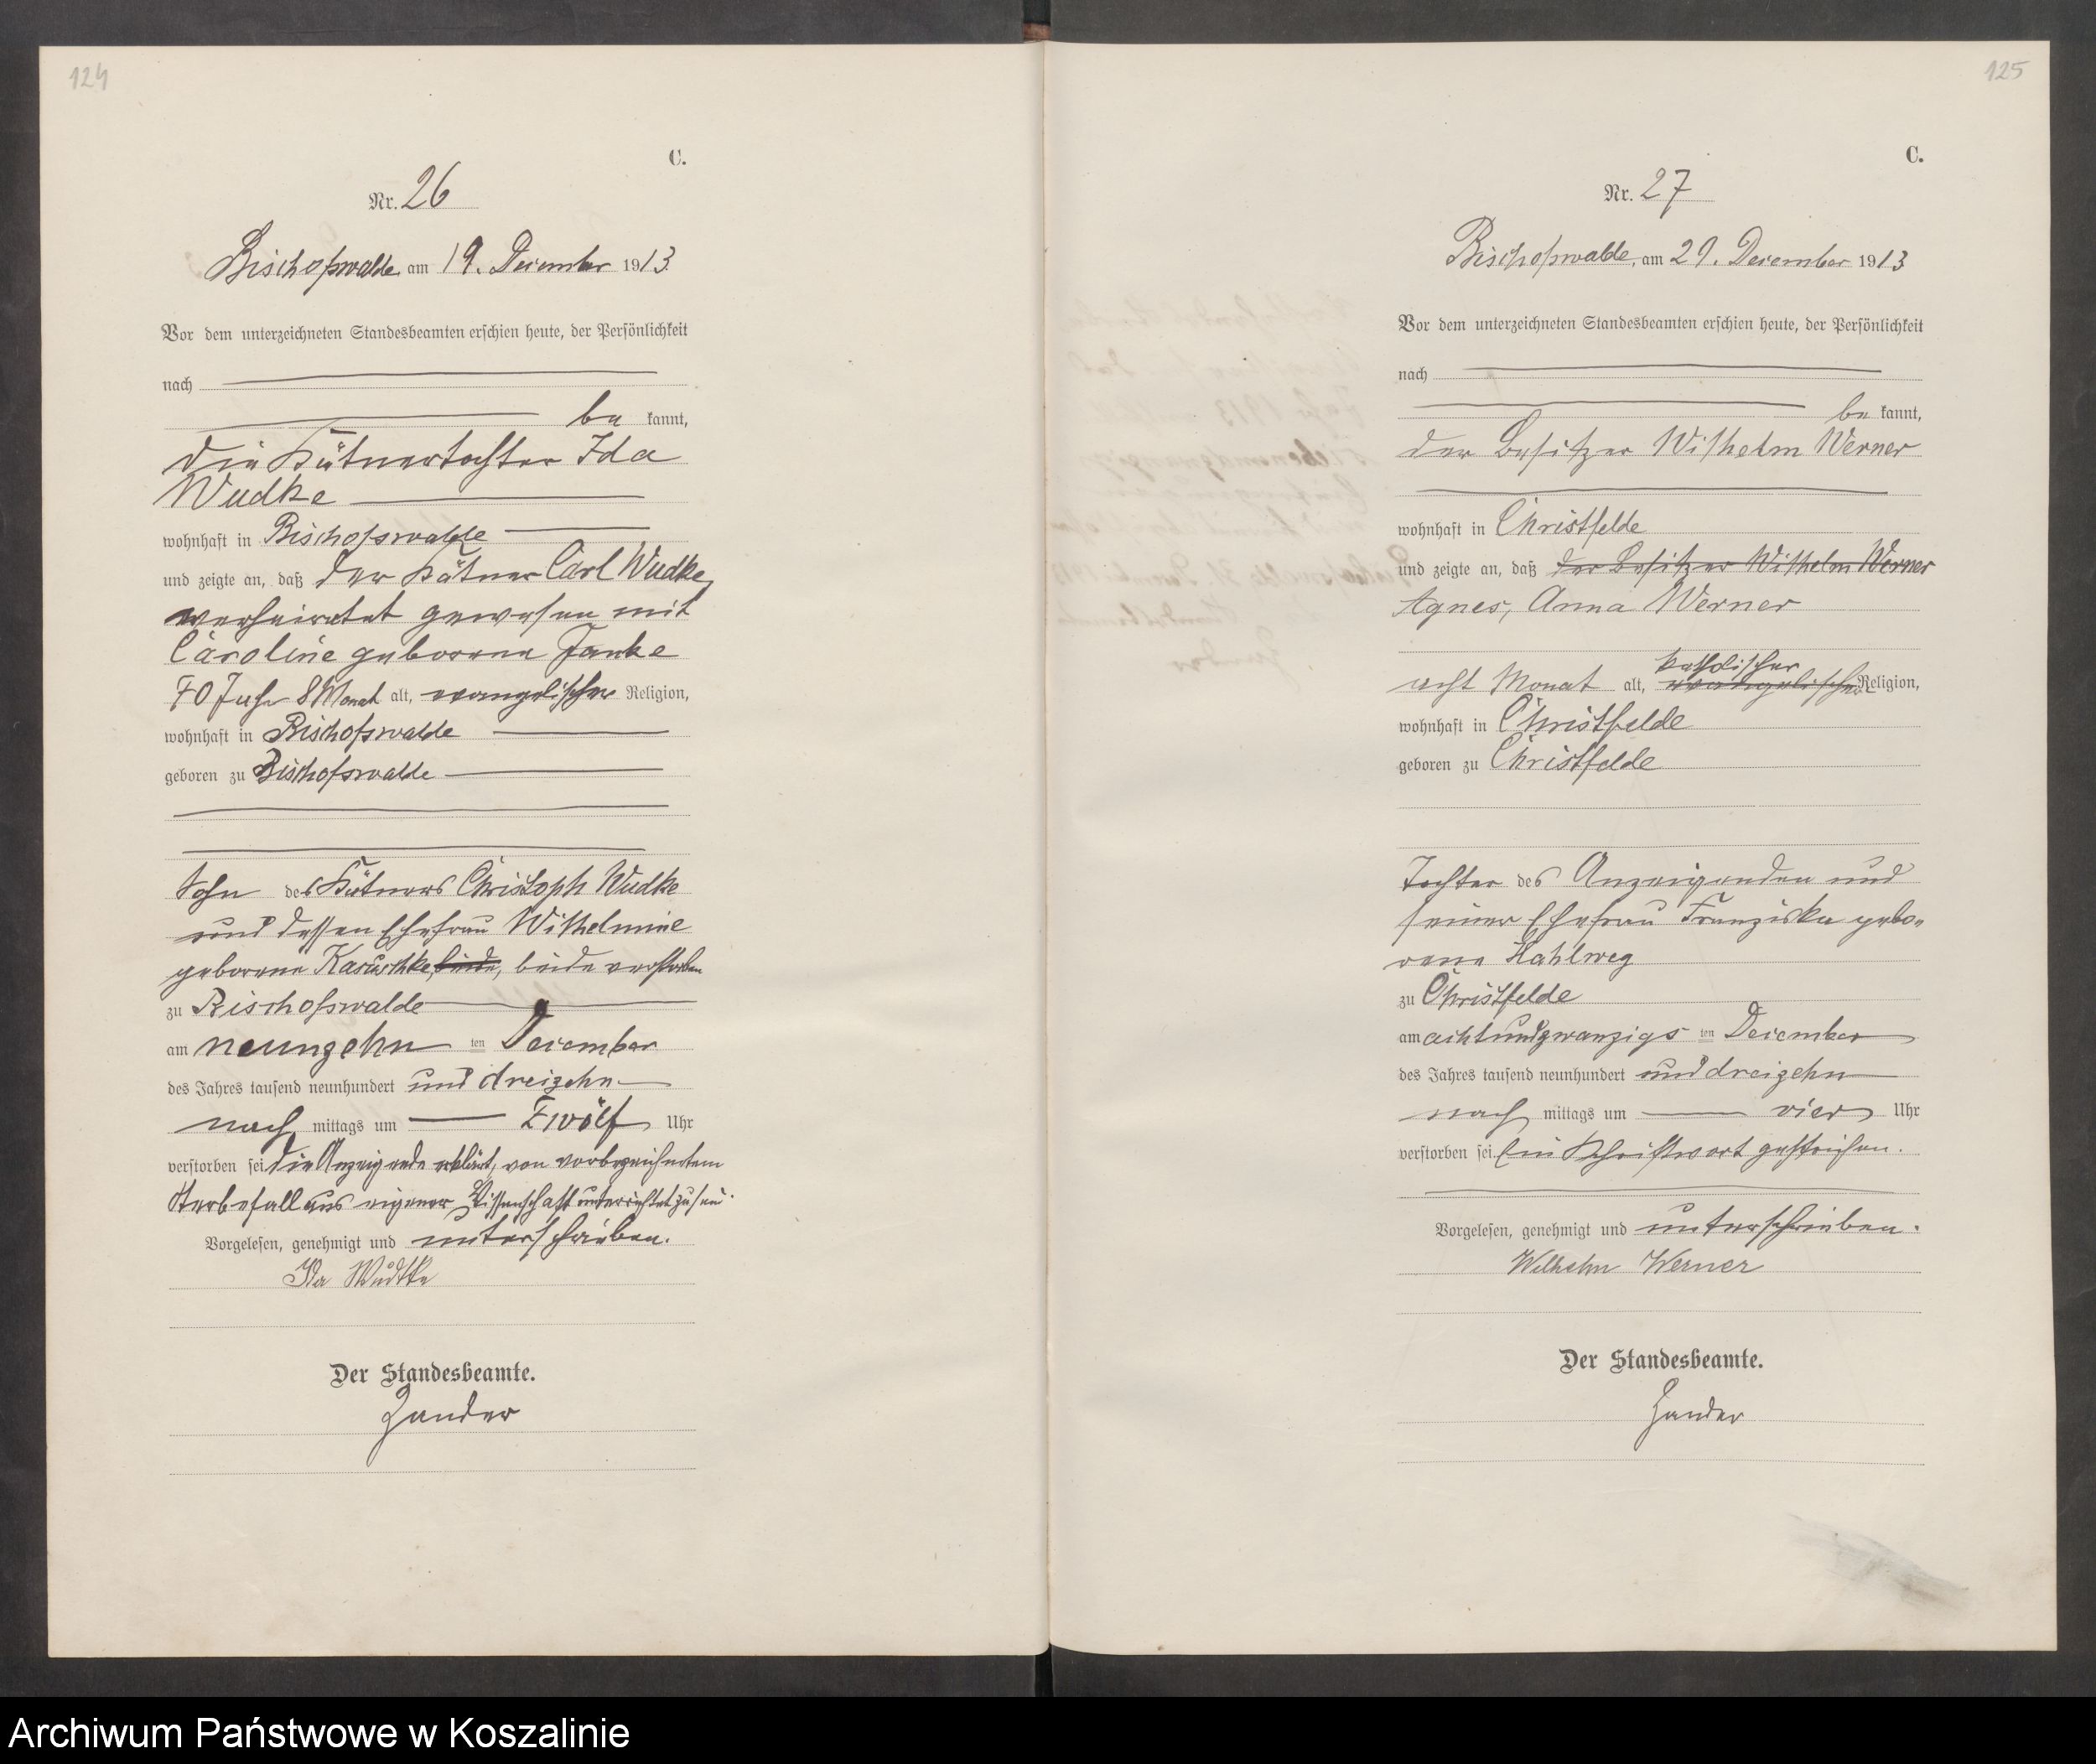 124
C.
Nr. 26
Bischofswalde am 19. December 1913.
Vor dem unterzeichneten Standesbeamten erschien heute, der Persönlichkeit
nach
be kannt,
die Kätnertochter Ida
Wudke
wohnhaft in Bischofswalde
und zeigte an, daß der Kätner Carl Wudke,
verheiratet gewesen mit
Caroline geborene Janke
70 Jahr 8 Monat alt, evangelischer Religion,
wohnhaft in Bischofswalde
geboren zu Bischofswalde
Sohn des Kätners Christoph Wudke
und dessen Ehefrau Wilhelmine
geborene Karuschke, beide, beide verstorben
zu Bischofswalde
am neunzehn ten December
des Jahres tausend neunhundert und dreizehn
nach mittags um zwölf Uhr
verstorben sei. die Anzeigende erklärt, von vorbezeichnetem
Sterbefall aus eigener Wissenschaft unterrichtet zu sein.
Vorgelesen, genehmigt und unterschrieben.
Ida Wudtke
Der Standesbeamte.
Zander
125
C.
Nr. 27
Bischofswalde, am 29. December 1913
Vor dem unterzeichneten Standesbeamten erschien heute, der Persönlichkeit
nach
be kannt,
der Besitzer Wilhelm Werner
wohnhaft in Christfelde
und zeigte an, daß der Besitzer Wilhelm Werner
Agnes, Anna Werner
katholischer
acht Monat alt, evangelischer Religion,
wohnhaft in Christfelde
geboren zu Christfelde
Tochter des Anzeigenden und
seiner Ehefrau Franziska gebo-
rene Hahlweg
zu Christfelde
am achtundzwanzigs ten December
des Jahres tausend neunhundert und dreizehn
nach mittags um vier Uhr
verstorben sei. Ein Schriftwort gestrichen.
Vorgelesen, genehmigt und unterschrieben.
Wilhelm Werner
Der Standesbeamte.
Zander
Archiwum Państwowe w Koszalinie